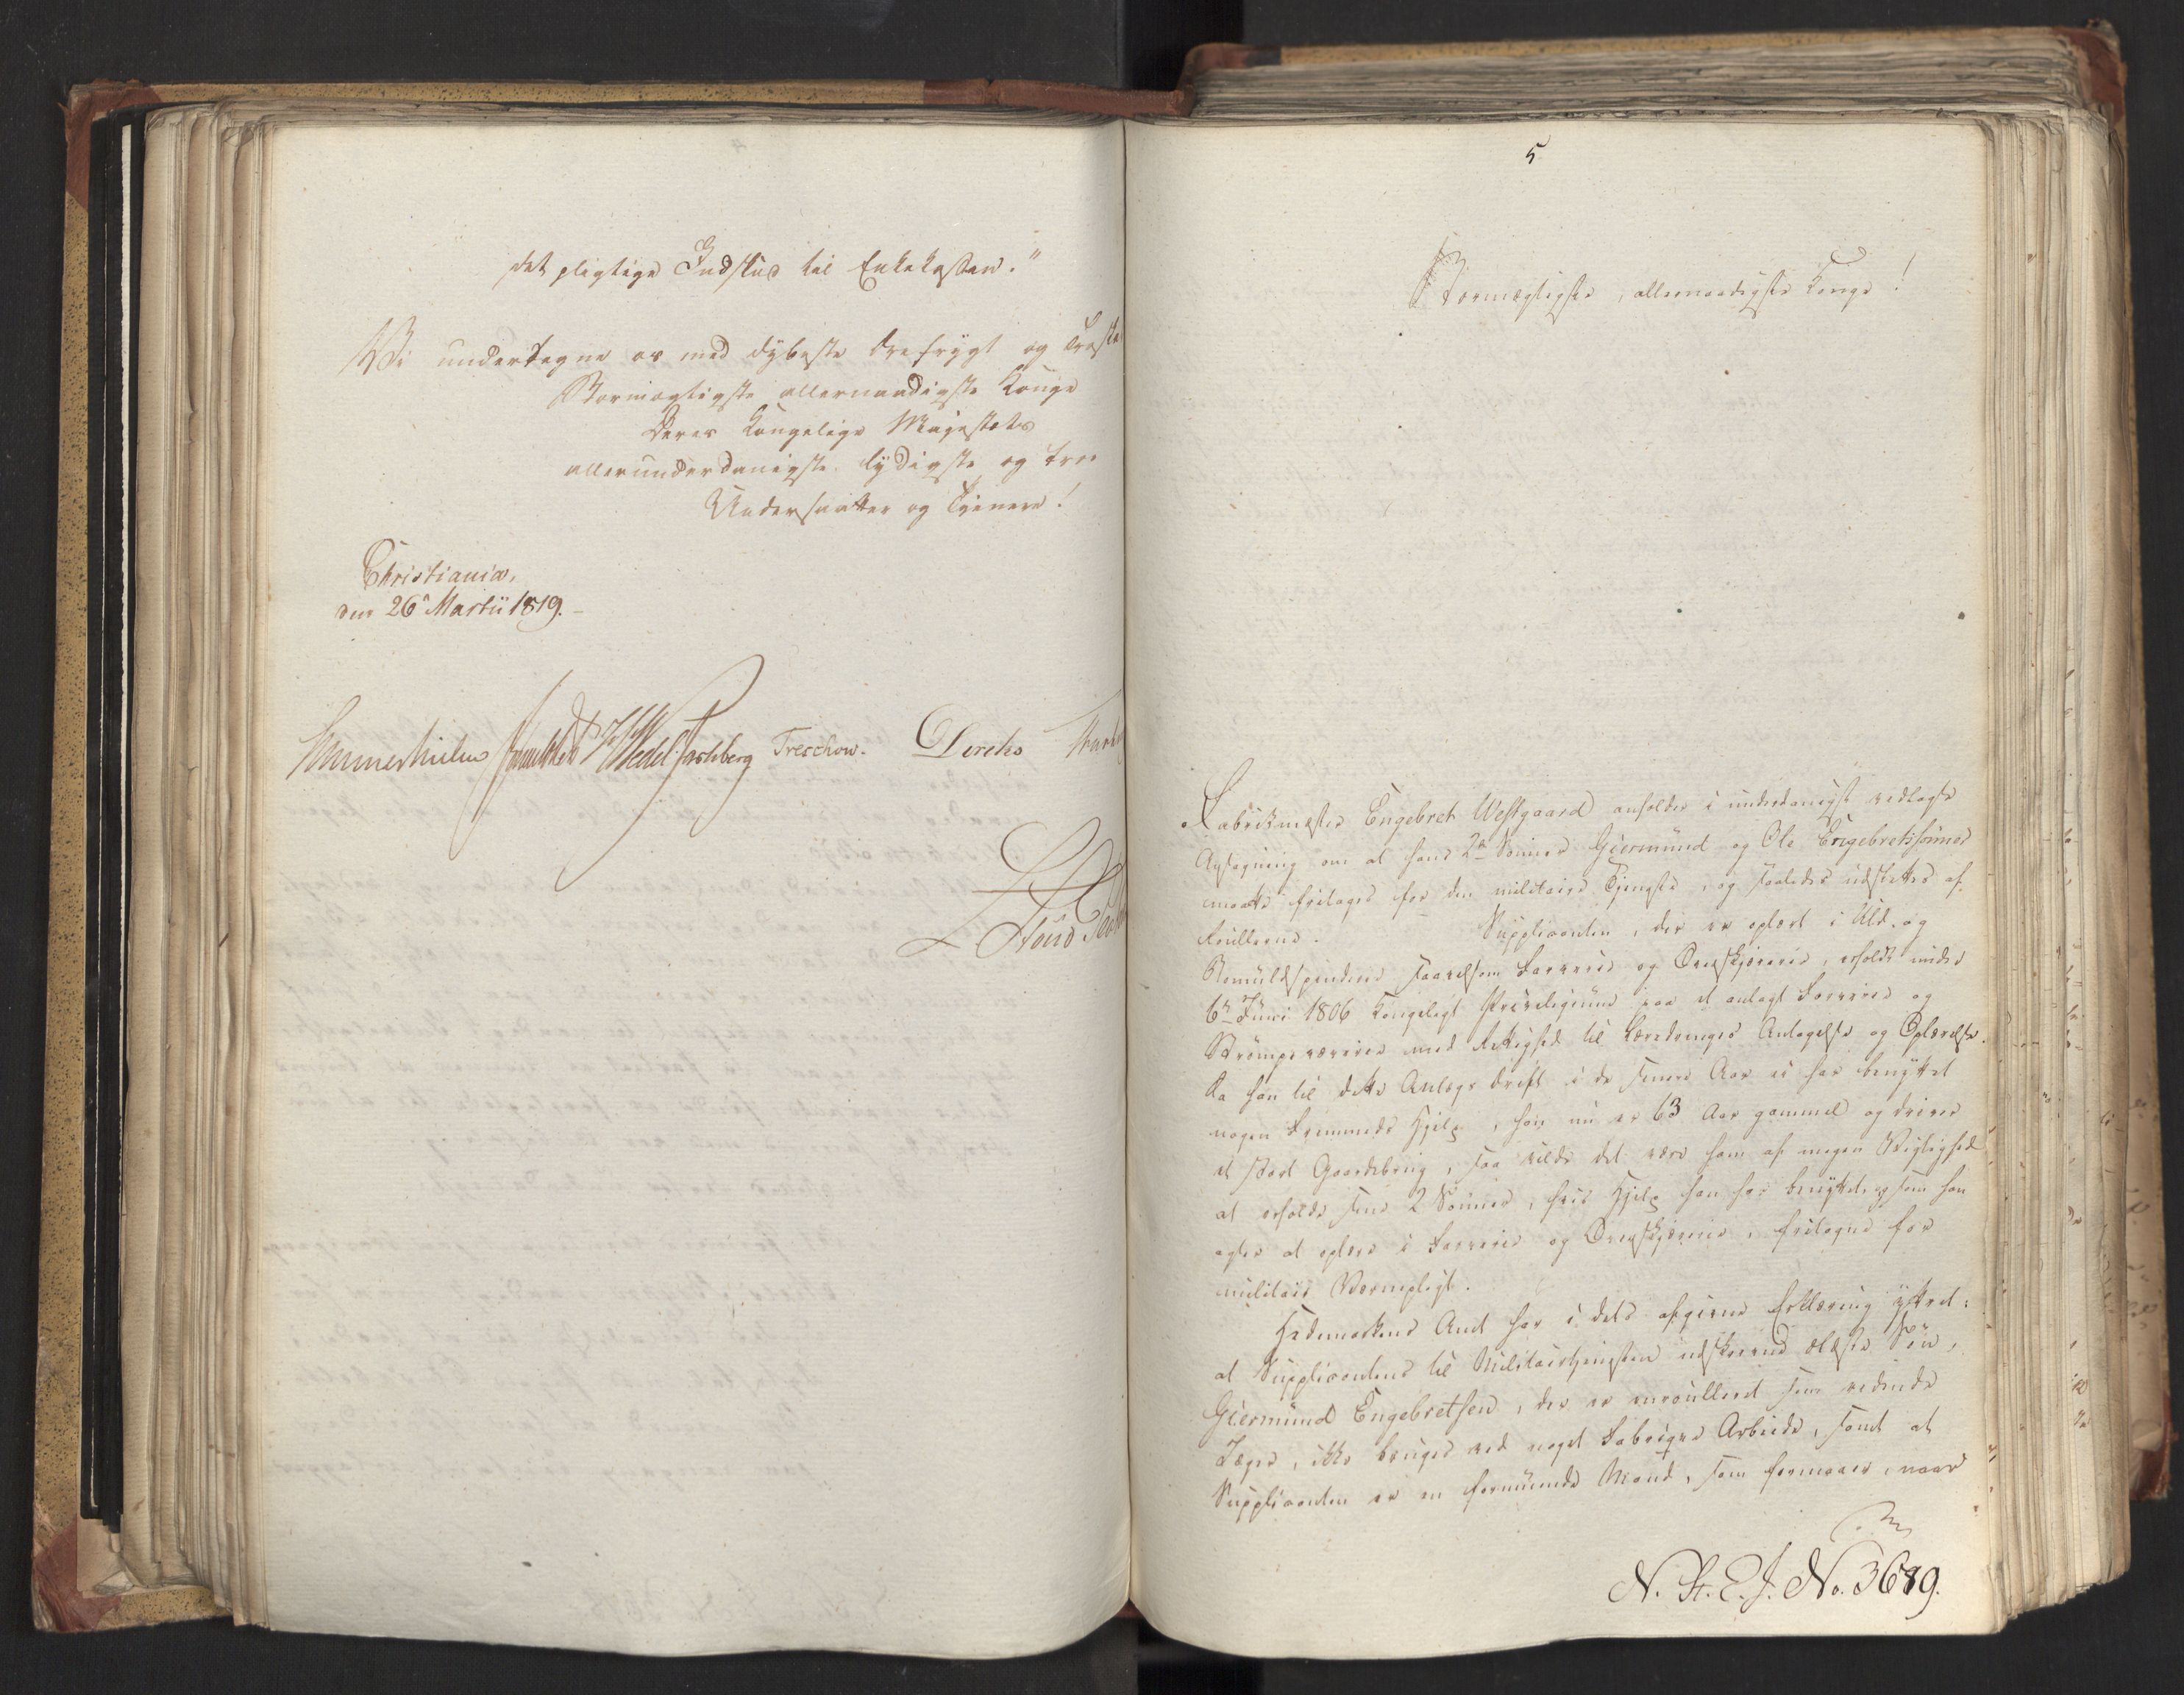 det pligtige Indskud til Enkekassen."
Vi undertegne os med dybeste Ærefrygt og
Stormægtigste allernaadigste Konge
Deres Kongelige Majestæts
allerunderdanigste lydigste og troe
Undersaatter og Tjenere!
Christiania,
den 26' Martii 1819.
Sommerhielm HWedel Jarlsberg Treschow. Diriks
5
Stormægtigste, allernaadigste Konge!
Fabrikmester Engebret Westgaard anholder i underdanigst vedlagte
Ansøgning om at hans 2de Sønner Giermund og Ole Engebretssønner
maatte fritages for den militaire Tjeneste, og saaledes udslettes af
Roullerne. Supplicanten, der er oplært i Uld- og
Bomuldspinderie saavelsom Farverie og Overskjærerie, erholdt under
6te Juni 1806 Kongeligt Privilegium paa et anlagt Farverie og
Strømpevæverie med Rettighed til Læredrenges Antagelse og Oplærelse.
Da han til dette Anlægs Drift i de senere Aar ei har benyttet
nogen Fremmeds Hjelp, han nu er 63 Aar gammel og driver
et stort Gaardsbrug, saa vilde det være ham af megen Vigtighed
at erholde sine 2 Sønner, hvis Hjelp han har benyttet, og som han
agter at oplære i Farverie og Overskjærerie, fritagne for
militair Værnepligt.
Hedemarkens Amt har i dets afgivne Erklæring yttret:
at Supplicantens til Militairtjenesten udskrevne ældste Søn,
Giermund Engebretsen, der er enroulleret som ridende
Jæger, ikke bruges ved noget Fabriqve Arbeide, samt at
Supplicanten er en formuende Mand, som formaaer, naar
N. St. E. J. No. 3689.